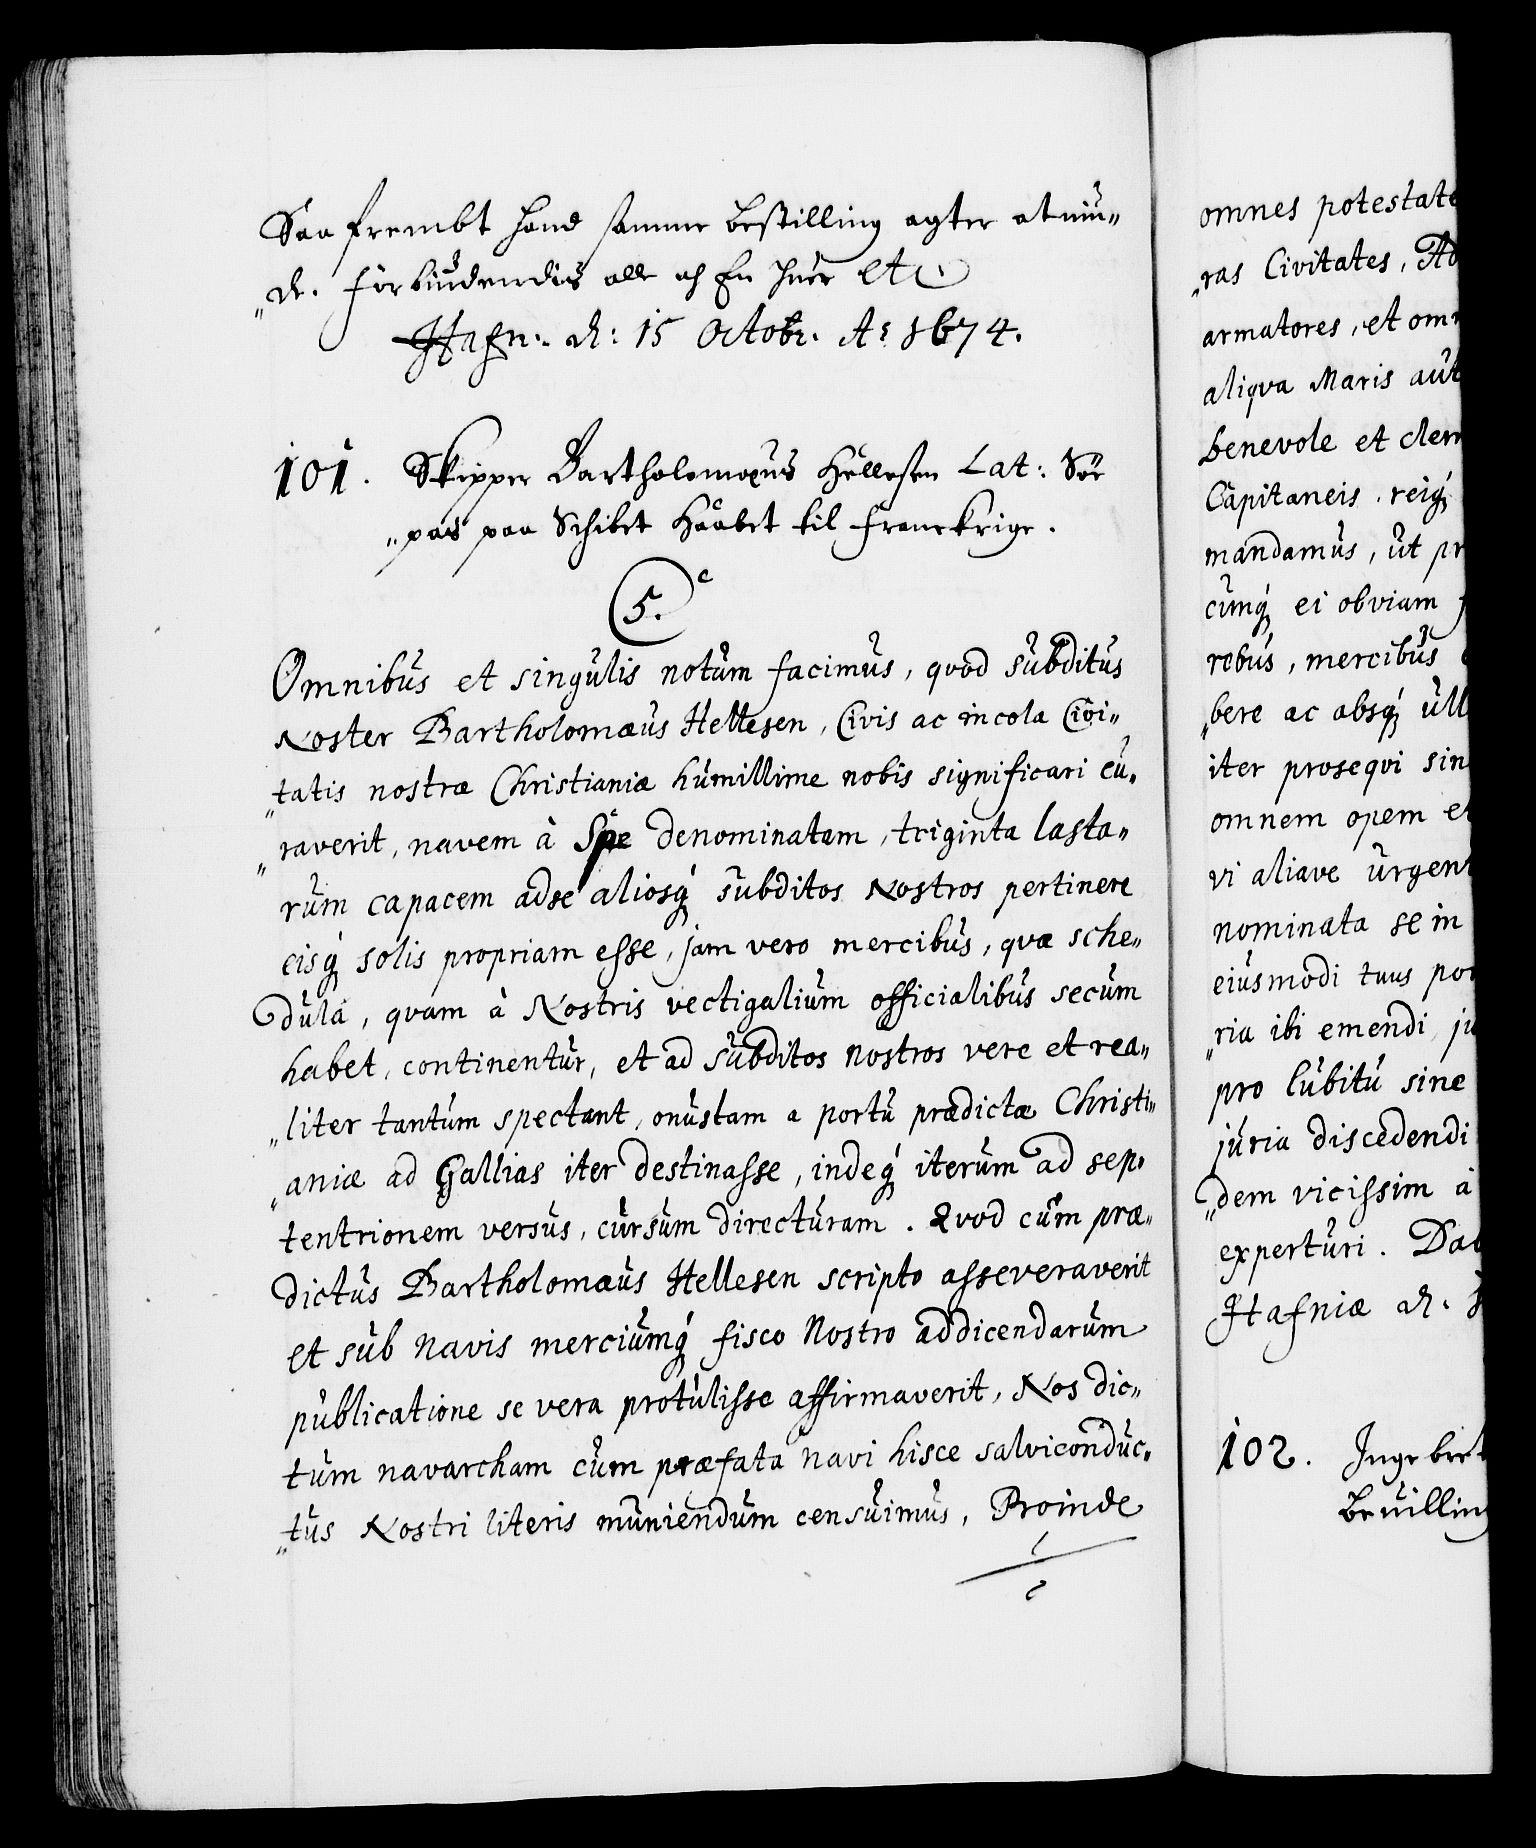 Saa frembt hand samme bestilling agter at niu„
„de. forbiudendis alle og En huer etc
Hafn: d: 15 Octobr. Ao 1674.
101. Skipper Bartholomæus Hellesen Lat: Sør
„pas paa Schibet Haabet til Franckrige.
C 5.
Omnibus et singulis notum facimus, qvod subditus
Noster Bartholomæus Hellesen, Civis ac incola Civi„
„tatis nostræ Christianiæ humillime nobis significari cu„
„raverit, navem à Spe denominatam, triginta lasta„
rum capacem ad se aliosq́ subditos Nostros pertinere
eisq́ solis propriam esse, jam vero mercibus, qvæ sche„
dula, qvam à Nostris vectigalium officialibus secum
habet, continentur, et ad subditos nostros vere et rea„
„liter tantum spectant, onustam a portu prædictæ Christi„
„aniæ ad Gallias iter destinasse, indeq́ iterum ad sep„
tentrionem versus, cursum directuram. Qvod cum præ„
dictus Bartholomæus Hellesen scripto asseveraverit
et sub navis merciumq́ fisco Nostro addicendarum
publicatione se vera protulisse affirmaverit, Nos dic„
tum navarcham cum præfata navi hisce salviconduc„
„tus Nostri literis muniendum censuimus, Proinde
omnes potestate
„ras Civitates, Ad
armatores, et omn
aliqva Maris aut
benevole et clem
Capitaneis reiq́
mandamus, ut pr
cunq́ ei obviam f
rebus, mercibus
„bere ac absq́ ull
iter proseqvi sin
omnem opem et
vi aliave urgent
nominata se in
eiusmodi tuus por
„ria ibi emendi, ju
pro lubitu sine
juria discedendi
„dem vicissim à
experturi. Dab
Hafniæ d.
102. Ingebret
Bevilling